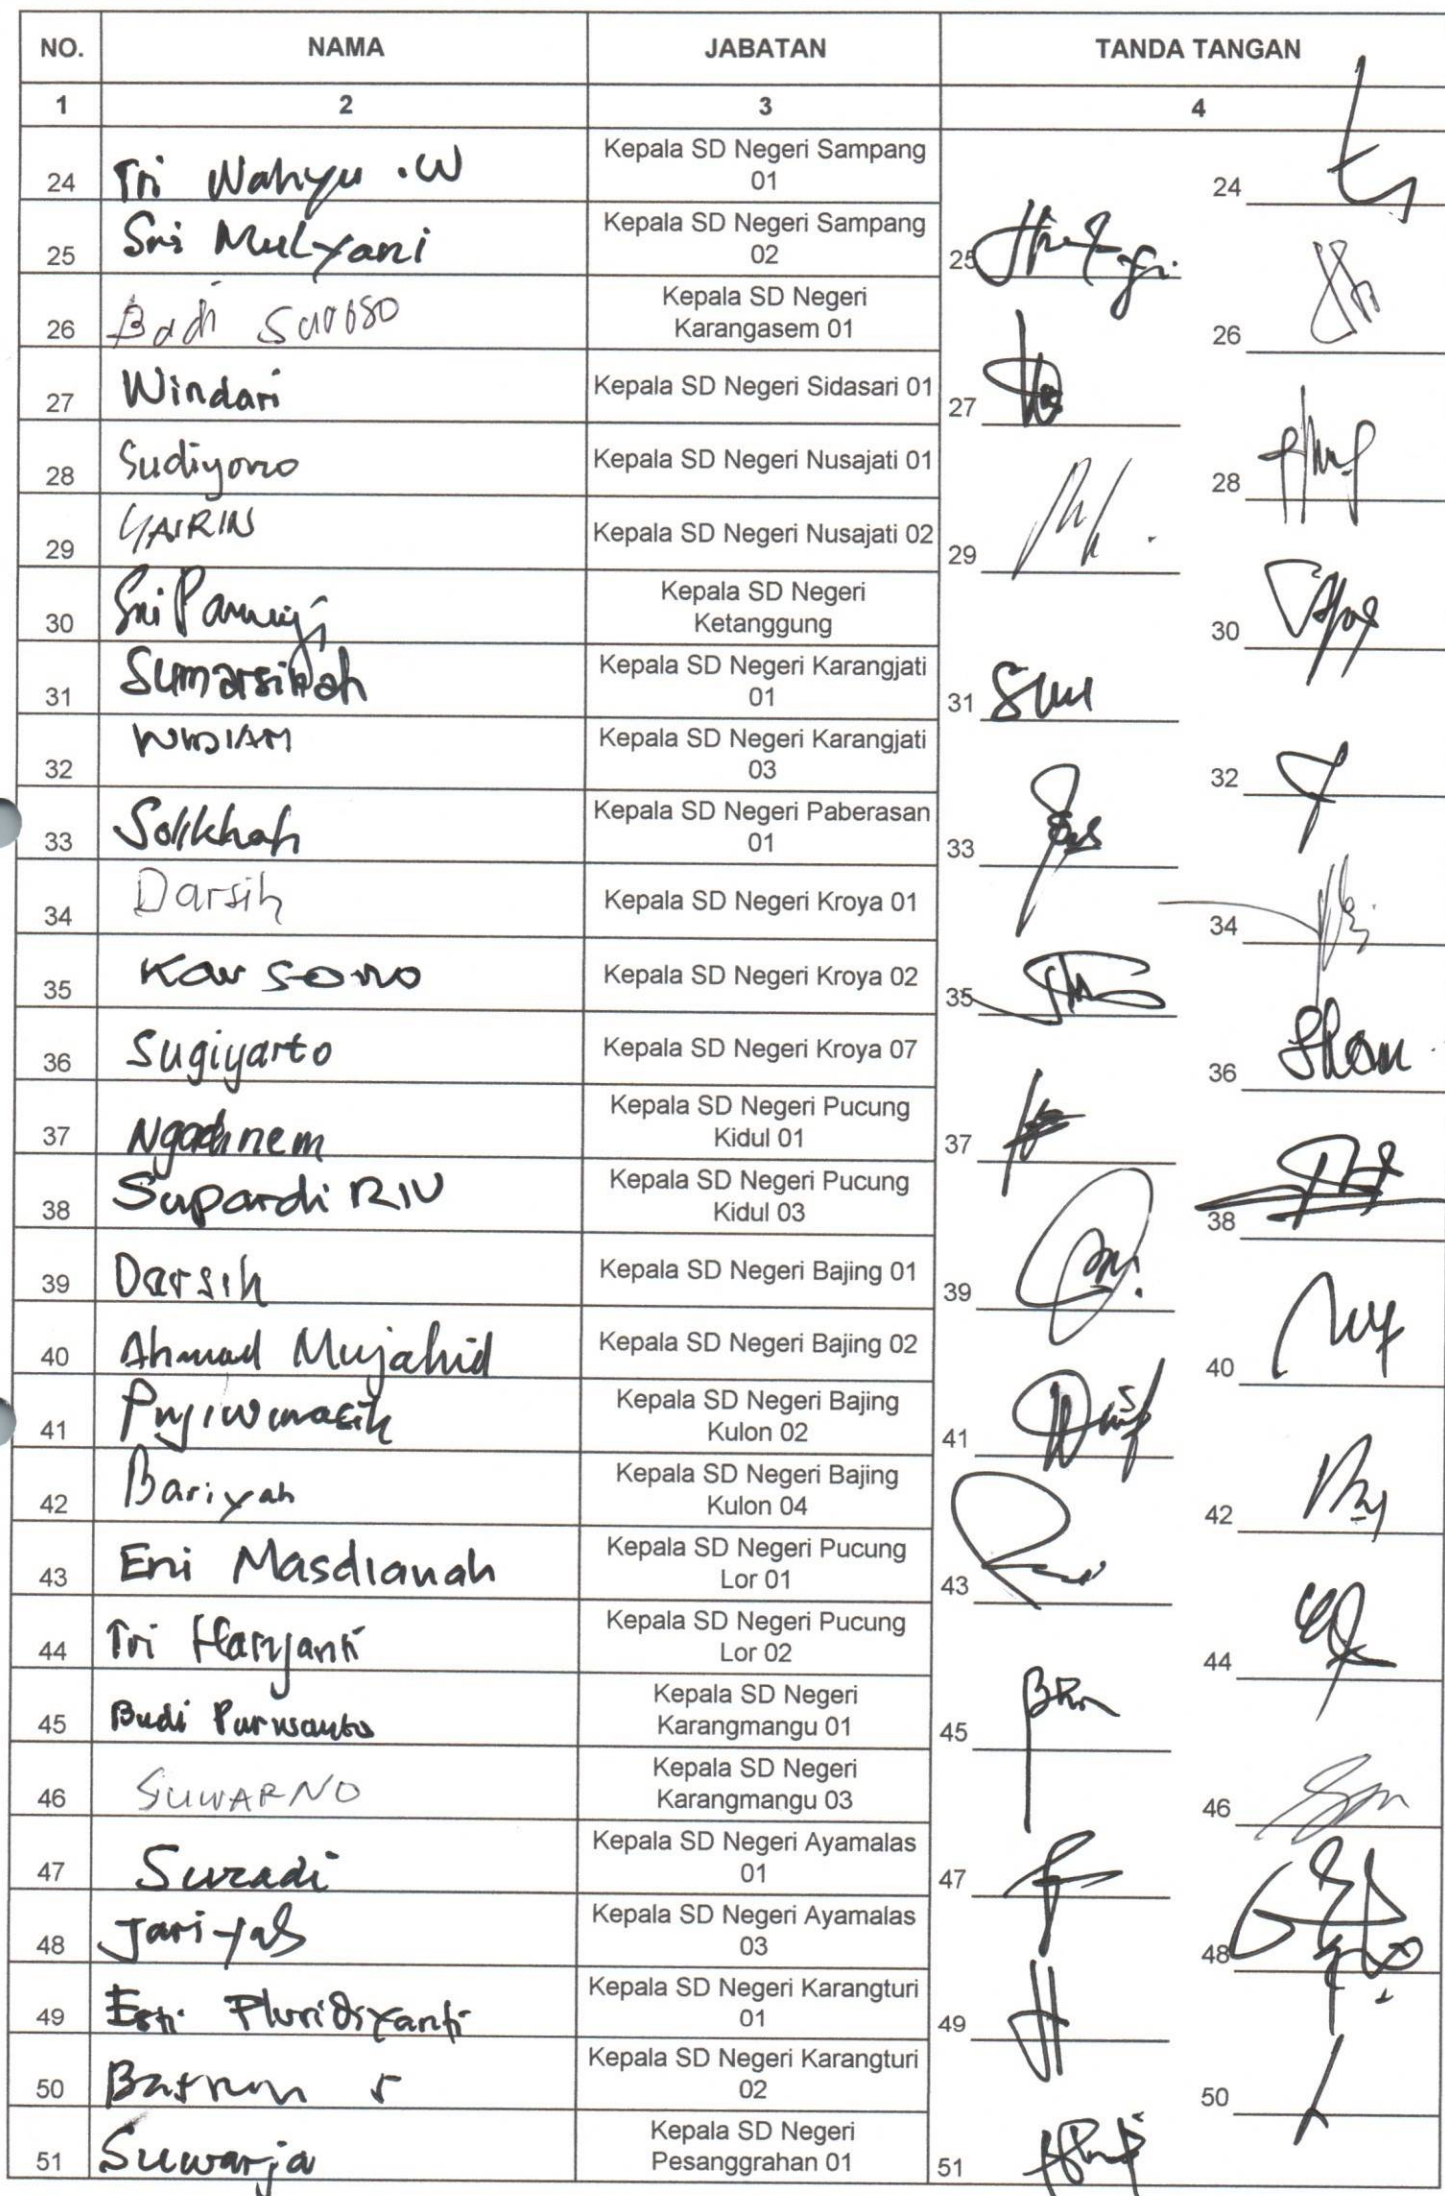 NO. NAMA JABATAN TANDA TANGAN
1 2 3 4
24 Tri Wahyu .W Kepala SD Negeri Sampang 01 24
25 Sri Mulyani Kepala SD Negeri Sampang 02 25
26 Kepala SD Negeri Karangasem 01 26
27 Windari Kepala SD Negeri Sidasari 01 27
28 Sudiyono Kepala SD Negeri Nusajati 01 28
29 YAIRIN Kepala SD Negeri Nusajati 02 29
30 Sri Pamuji Kepala SD Negeri Ketanggung 30
31 Sumarsinah Kepala SD Negeri Karangjati 01 31
32 Kepala SD Negeri Karangjati 03 32
33 Solikhah Kepala SD Negeri Paberasan 01 33
34 Darsih Kepala SD Negeri Kroya 01 34
35 Karsono Kepala SD Negeri Kroya 02 35
36 Sugiyarto Kepala SD Negeri Kroya 07 36
37 Ngadinem Kepala SD Negeri Pucung Kidul 01 37
38 Supardi Kepala SD Negeri Pucung Kidul 03 38
39 Darsih Kepala SD Negeri Bajing 01 39
40 Ahmad Mujahid Kepala SD Negeri Bajing 02 40
41 Kepala SD Negeri Bajing Kulon 02 41
42 Bariyah Kepala SD Negeri Bajing Kulon 04 42
43 Eni Masdianah Kepala SD Negeri Pucung Lor 01 43
44 Tri Haryanti Kepala SD Negeri Pucung Lor 02 44
45 Budi Purwanto Kepala SD Negeri Karangmangu 01 45
46 SUWARNO Kepala SD Negeri Karangmangu 03 46
47 Suradi Kepala SD Negeri Ayamalas 01 47
48 Kepala SD Negeri Ayamalas 03 48
49 Esti Pluridiyanti Kepala SD Negeri Karangturi 01 49
50 Kepala SD Negeri Karangturi 02 50
51 Suwarja Kepala SD Negeri Pesanggrahan 01 51